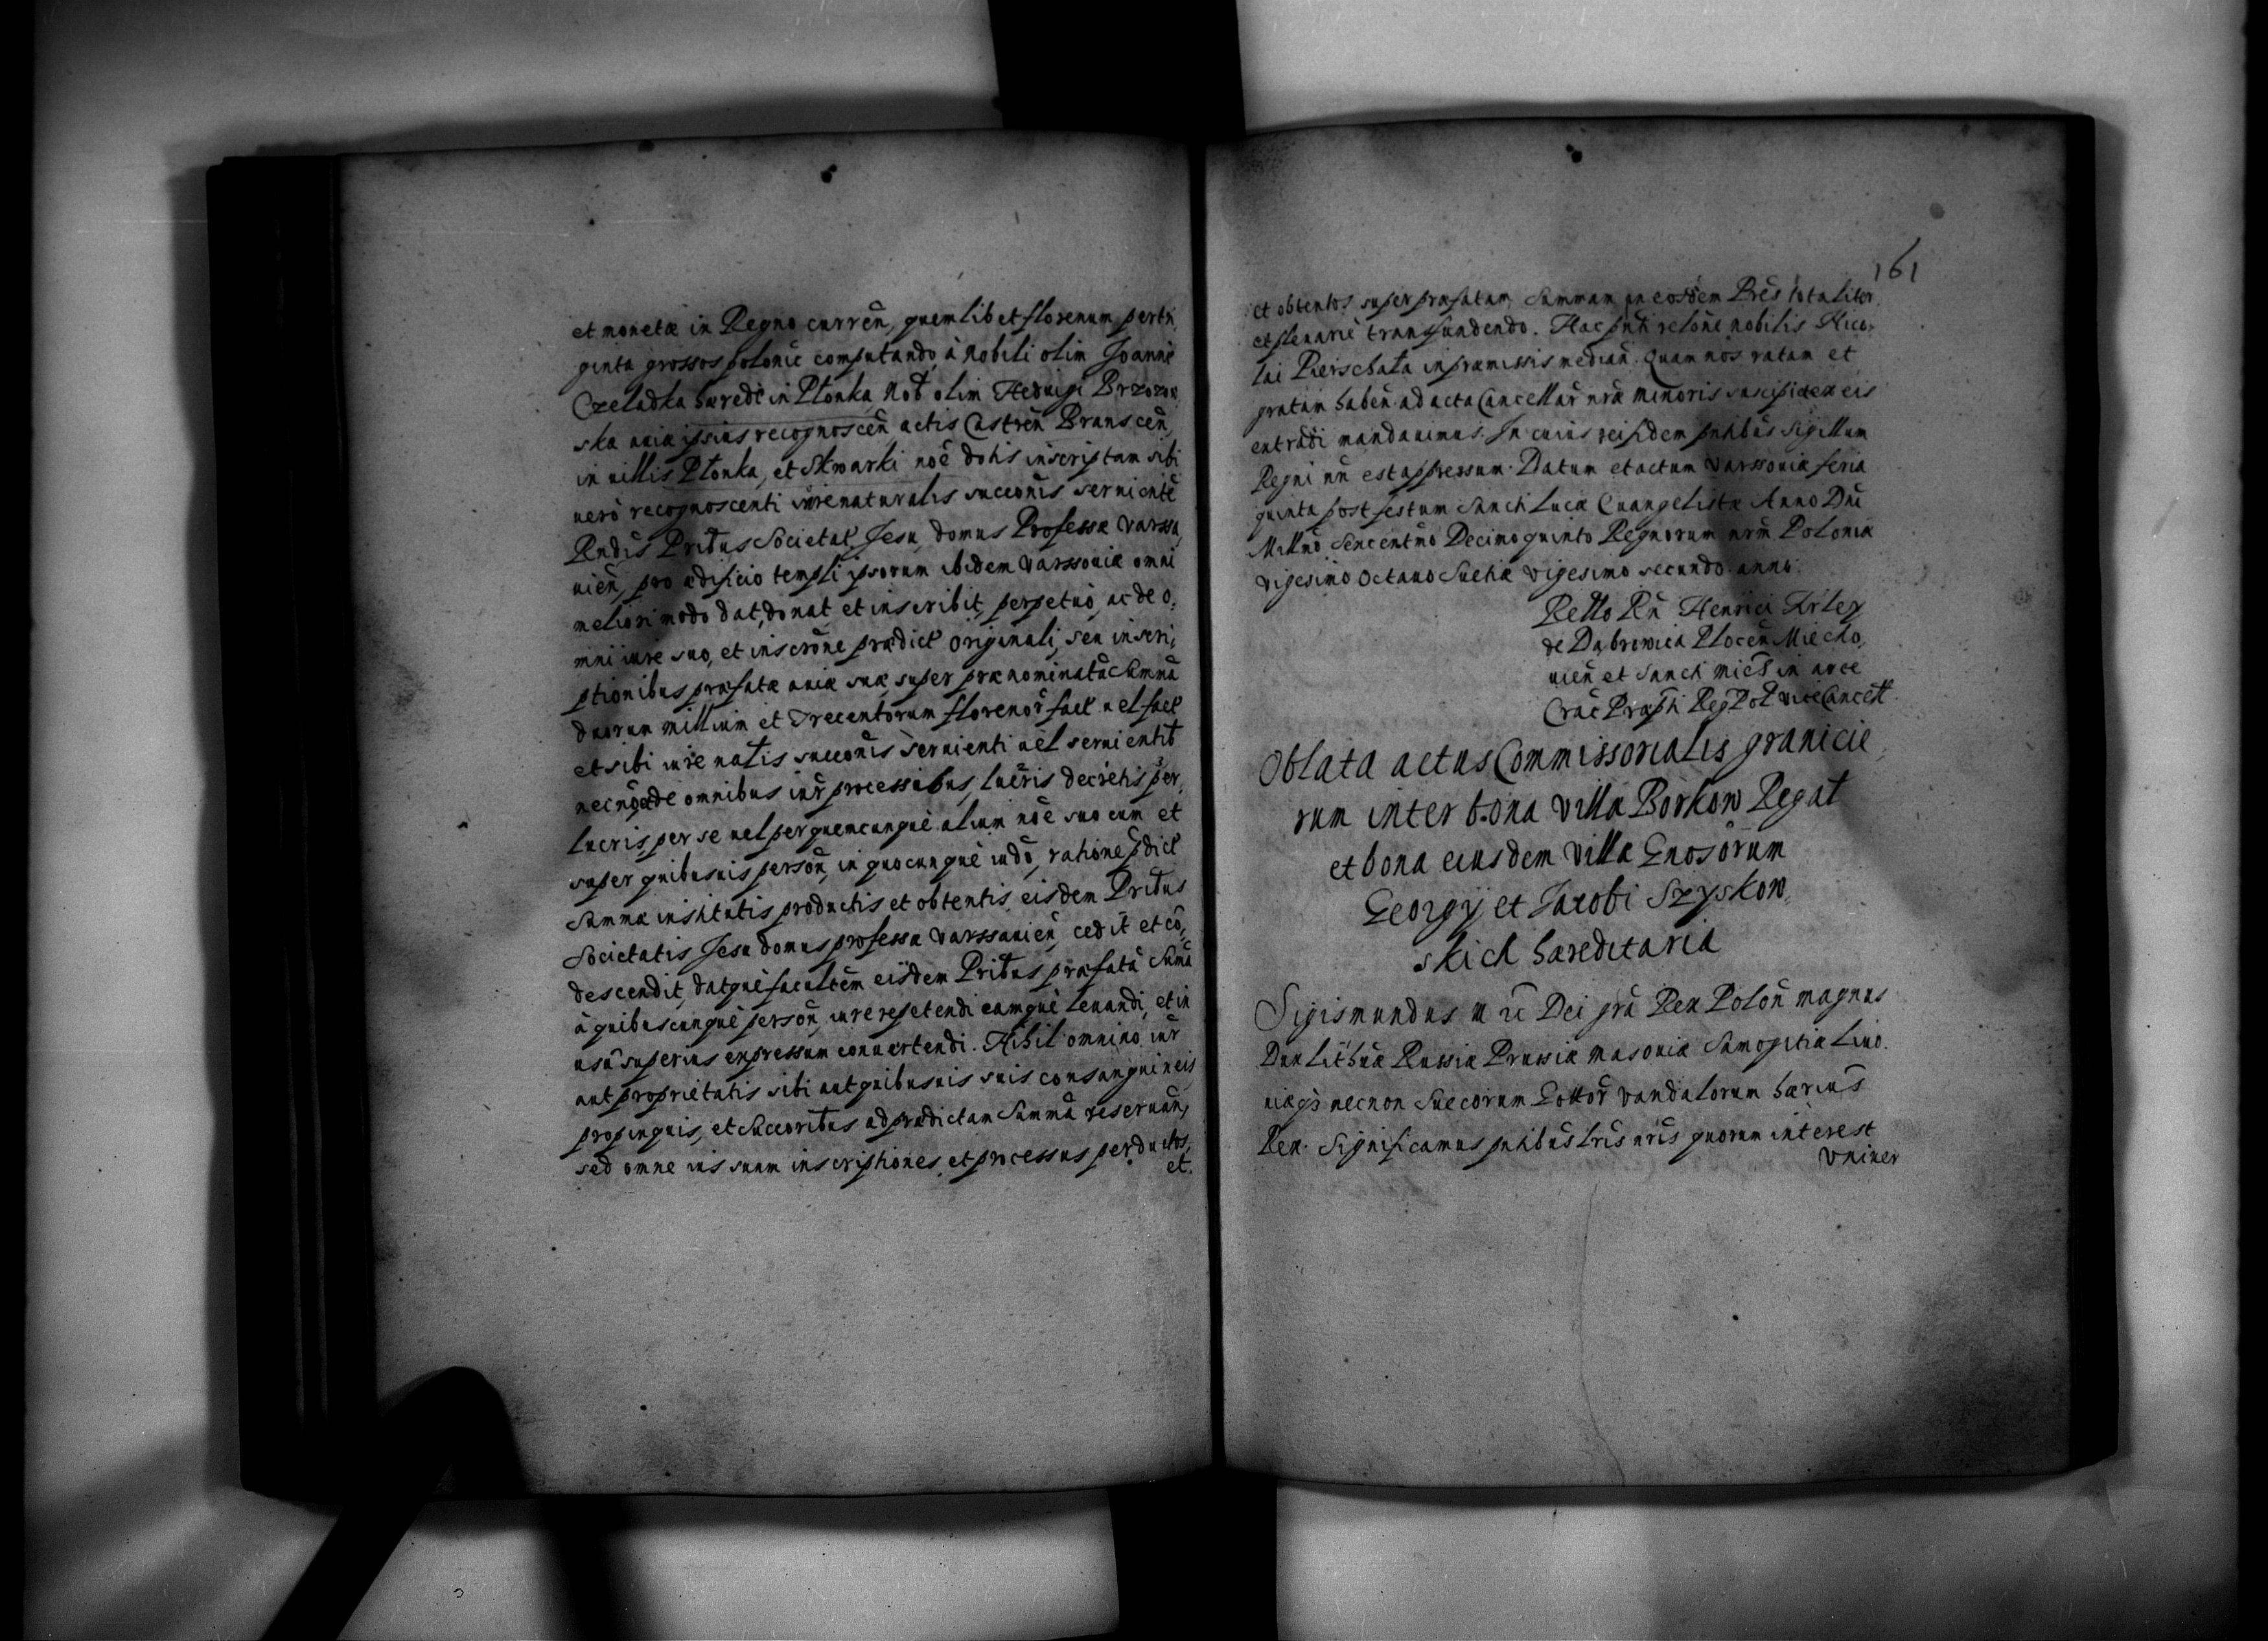 et monetæ in Regno curren̄, quemlibet florenum per tri
ginta grossos polonic̄ computando, à nobili olim Joanne
Czeladka hæredē in Płonka, Nob olim Heduigi Brzozow
ska auiæ ipsius recognoscen̄ actis Castren̄ Branscen̄,
in uillis Płonka, et Skwarki noē dotis inscriptam sibi
uerò recognoscenti iure naturalis succonis seruientē
Rndis Pribus Societat Jesu domus Professæ Varssa,
uien̄, pro ædificio templi ipsorum ibidem Varssouiæ omni
meliori modo dat, donat et inscribit, perpetuò, ac de o,
mni iure suo, et inscrōne prædict originali, seu inscri,
ptionibus præfatæ auiæ suæ super prænominatā Summā
duorum millium et Trecentorum florenor̄ fact uel fact
et sibi iure natis succonis seruienti uel seruientib
necnō de omnibus iur̄ processibus, lucris decretis per,
lucris, per se uel per quemcunque alium noē suo cum et
super quibusuis person̄, in quocunquè iudo, ratione pdict
Summæ institutis productis et obtentis eisdem Pribus
Societatis Jesu domus professæ Varssauien̄ cedit et co,
descendit, datquè facultem eisdem Pribus præfatā Sumā
à quibuscunquè person̄, iure repetendi eamquè leuandi, et in
usū superius expressum conuertendi. Nihil omnino iur̄
aut proprietatis sibi aut quibusuis suis consanguineis
propinquis, et Succoribus ad prædictam Summā reseruan̄,
sed omne ius suum inscriptiones et processus perductos,
et.
161
et obtentos super præfatam Summam in eosdem Prēs totaliter
et plenariè transfundendo. Hac pnti relōne nobilis Nico,
lai Pierschała in præmissis median̄. Quam nos ratam et
gratam haben̄ ad acta Cancellar̄ nrā minoris suscipi et ex eis
extradi mandauimus. In cuius rei fidem pntibus sigillum
Regni nn̄ est appressum. Datum et actum Varssouiæ feria
quinta post festum Sancti Lucæ Euangelistæ Anno Dni
Millmo Sexcentmo Decimo quinto Regnorum nrm̄ Poloniæ
vigesimo octauo Suetiæ vigesimo secundo anno.
Rello Rn̄ Henrici Firley
de Dąbrowica Plocen̄ Miecho,
uien̄ et Sancti Micħ in arce
Crac̄ Præpti Reg Pol vice Cancell
Oblata actus Commissorialis granicie
rum inter bona villæ Borkow Regal
et bona eiusdem villæ Gnosorum
Georgij et Jacobi Szyskow,
skich hæreditaria
Sigismundus Dei grā Rex Polon̄ magnus
Dux Lithuæ Russiæ Prussiæ Masouiæ Samogitiæ Liuo.
niæqȝ necnon Suecorum Gottor̄ Vandalorum hærius̄
Rex. Significamus pntibus lris nris quorum interest
Vniuer